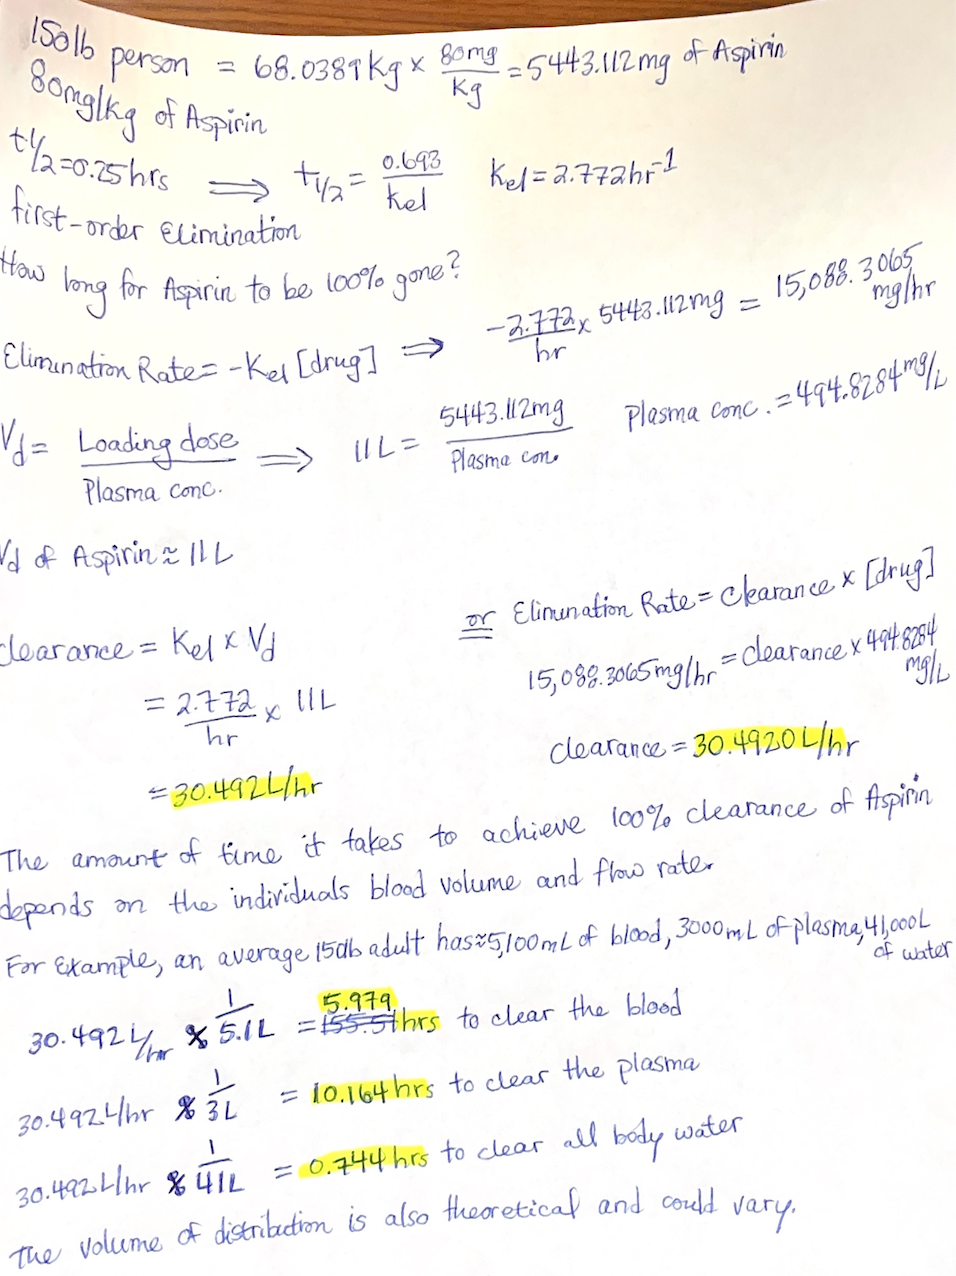 150lb person = 68.0389 kg x 80mg/kg = 5443.112 mg of Aspirin
80mg/kg of Aspirin
t1/2=0.25hrs ⟹ t1/2 = 0.693/Kel Kel = 2.772hr-1
first-order Elimination
How long for Aspirin to be 100% gone?
Elimination Rate = -Kel [drug] ⟹ -2.772/hr x 5443.112mg = 15,088.3065 mg/hr
Vd = Loading dose/Plasma conc. ⟹ 11L = 5443.112mg/Plasma con. Plasma conc. = 494.8284 mg/L
Vd of Aspirin ≈ 11L
clearance = Kel x Vd
= 2.772/hr x 11L
= 30.492L/hr
or Elimination Rate = Clearance x [drug]
15,088.3065mg/hr = clearance x 494.8284 mg/L
clearance = 30.4920L/hr
The amount of time it takes to achieve 100% clearance of Aspirin
depends on the individuals blood volume and flow rate.
For Example, an average 150lb adult has≈5,100mL of blood, 3000mL of plasma, 41,000L of water
30.492 L/hr x 1/5.1L = 5.979 155.51 hrs to clear the blood
30.492L/hr x 1/3L = 10.164 hrs to clear the plasma
30.492L/hr x 1/41L = 0.744 hrs to clear all body water
The volume of distribution is also theoretical and could vary.